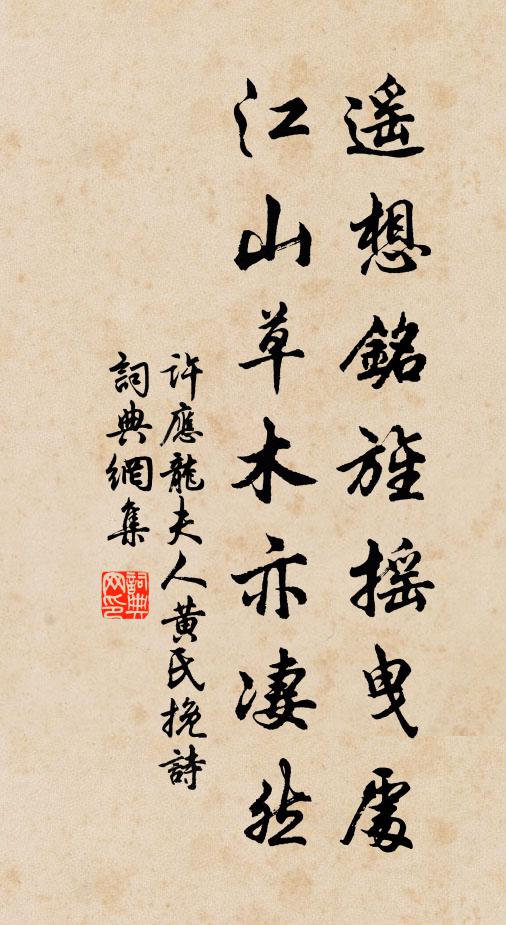 遥想銘旌搖曳處
江山草木亦凄然
許應龍夫人黃氏挽詩
詞典網集
詞典
网印